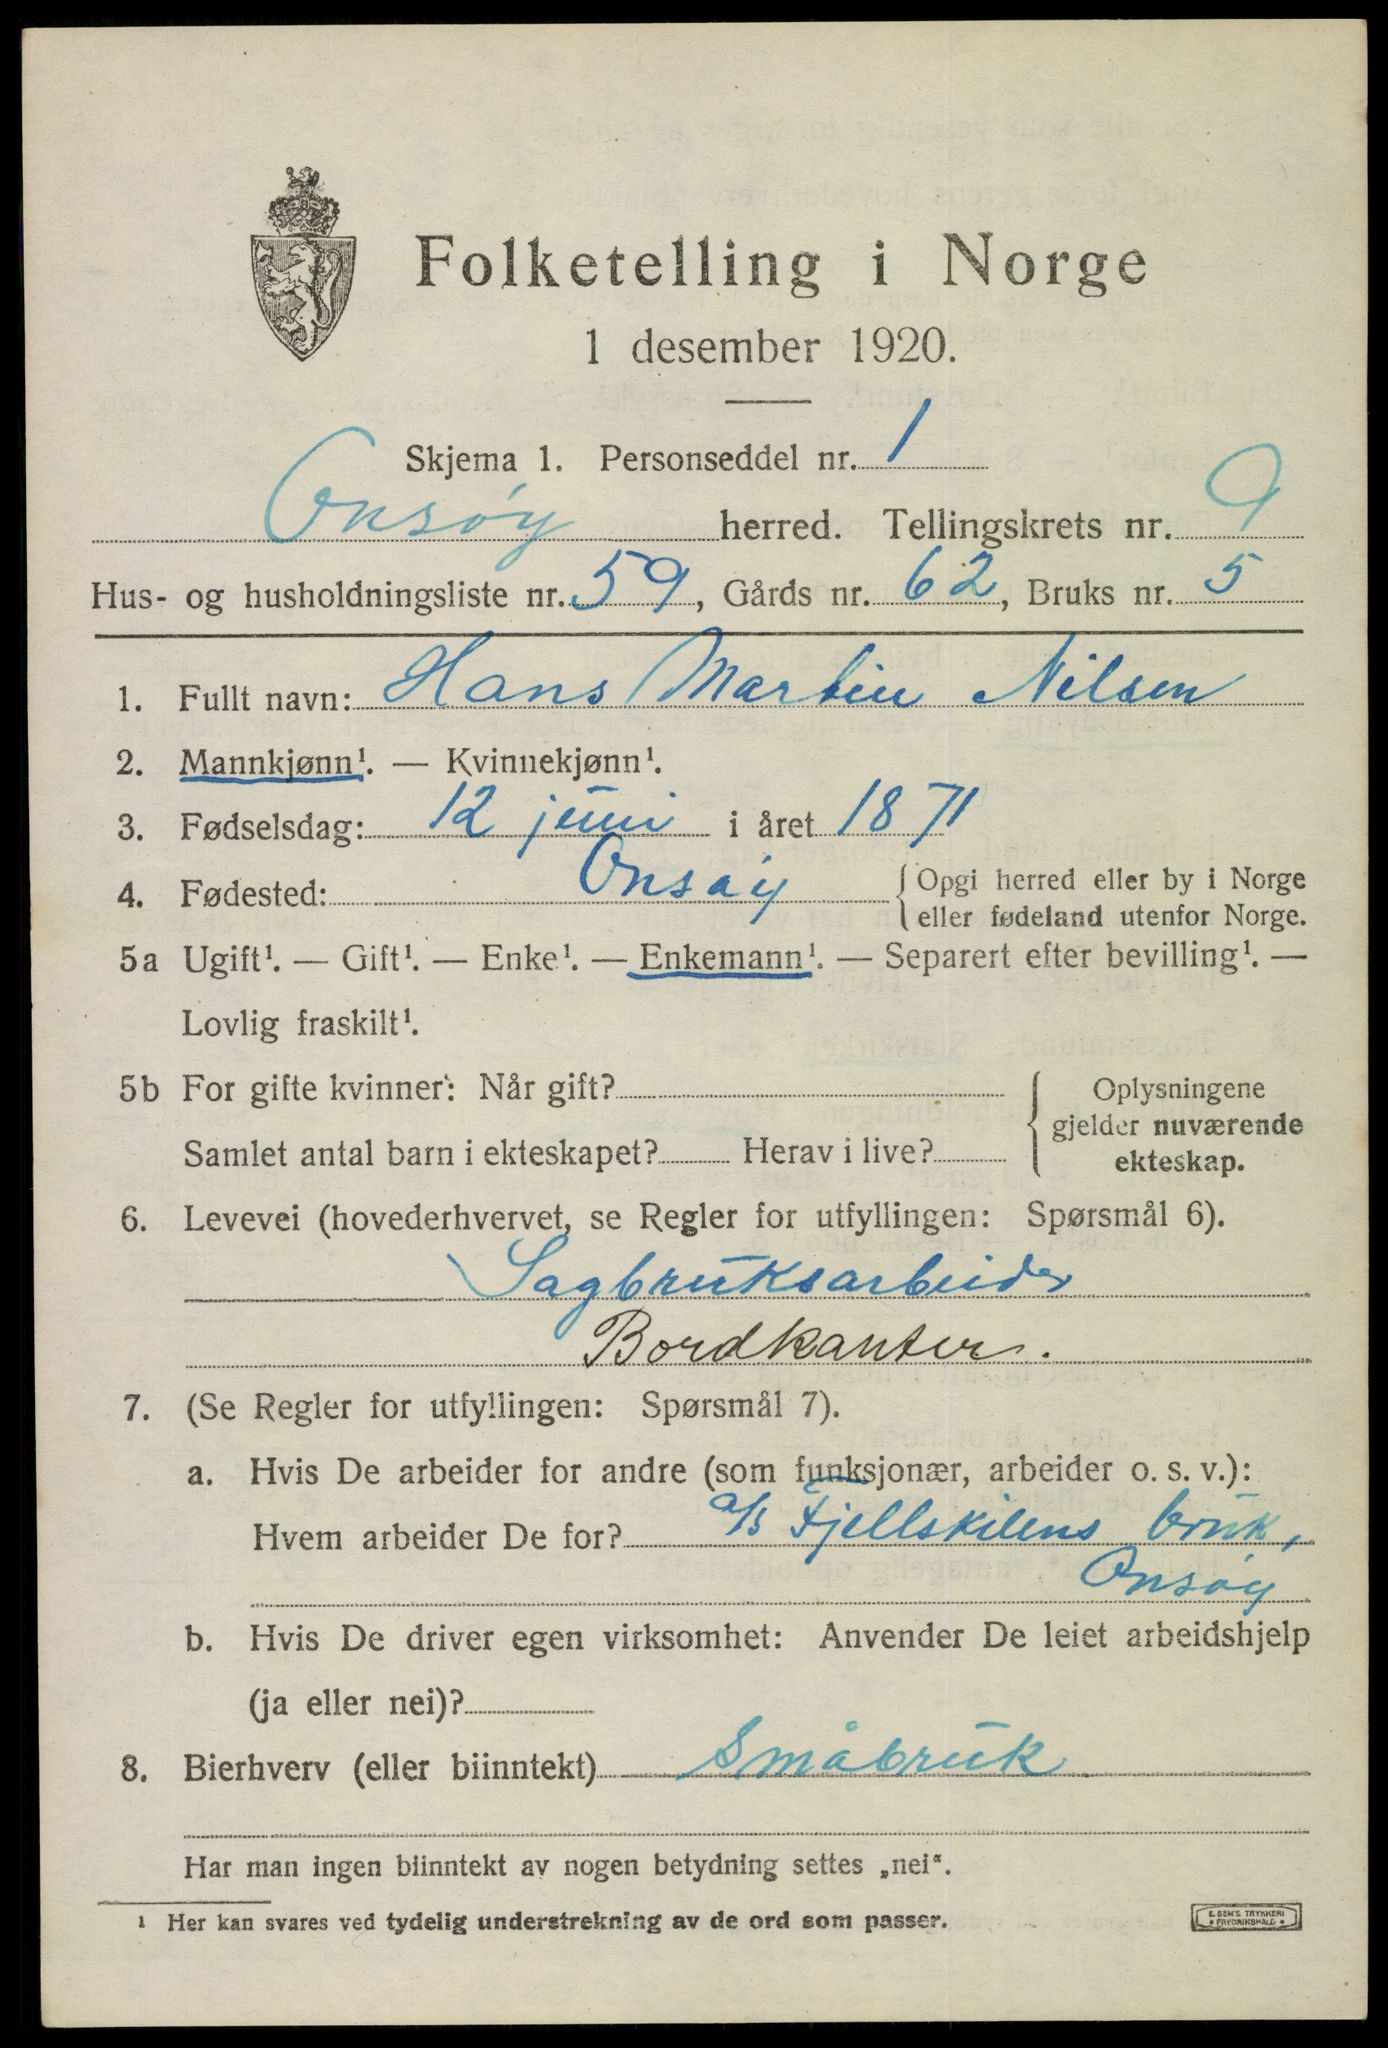 Folketelling i Norge
1 desember 1920.
Skjema 1. Personseddel nr. 1
Onsøy herred. Tellingskrets nr. 9
Hus- og husholdningsliste nr. 59, Gårds nr. 62, Bruks nr. 5
1. Fullt navn: Hans Martin Nilsen
2. Mannkjønn¹. — Kvinnekjønn¹.
3. Fødselsdag: 12 juni i året 1871
4. Fødested: Onsøy { Opgi herred eller by i Norge
eller fødeland utenfor Norge.
5a Ugift¹. — Gift¹. — Enke¹. — Enkemann¹. — Separert efter bevilling¹. —
Lovlig fraskilt¹.
5b For gifte kvinner: Når gift?
Samlet antal barn i ekteskapet? Herav i live?
{ Oplysningene
gjelder nuværende
ekteskap.
6. Levevei (hovederhvervet, se Regler for utfyllingen: Spørsmål 6).
Sagbruksarbeider
Bordkanter.
7. (Se Regler for utfyllingen: Spørsmål 7).
a. Hvis De arbeider for andre (som funksjonær, arbeider o. s. v.):
Hvem arbeider De for? a/s Fjellskilens bruk,
Onsøy
b. Hvis De driver egen virksomhet: Anvender De leiet arbeidshjelp
(ja eller nei)?
8. Bierhverv (eller biinntekt) Småbruk
Har man ingen biinntekt av nogen betydning settes „nei“.
¹ Her kan svares ved tydelig understrekning av de ord som passer.
E. SEM'S TRYKKERI
FREDRIKSHALD